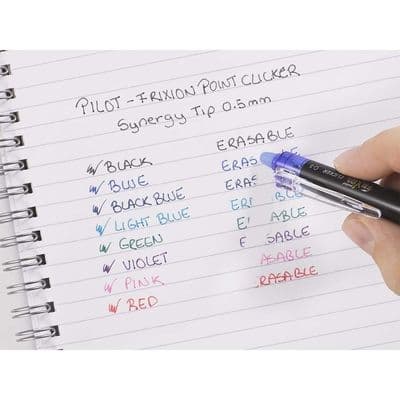 PILOT - FRIXION POINT CLICKER
Synergy Tip 0.5mm
ERASABLE
BLACK ERAS
BLUE ERAS
BLACK BLUE ERAS BLE
LIGHT BLUE ER BLE
GREEN E ABLE
VIOLET E SABLE
PINK ASABLE
RED RASABLE